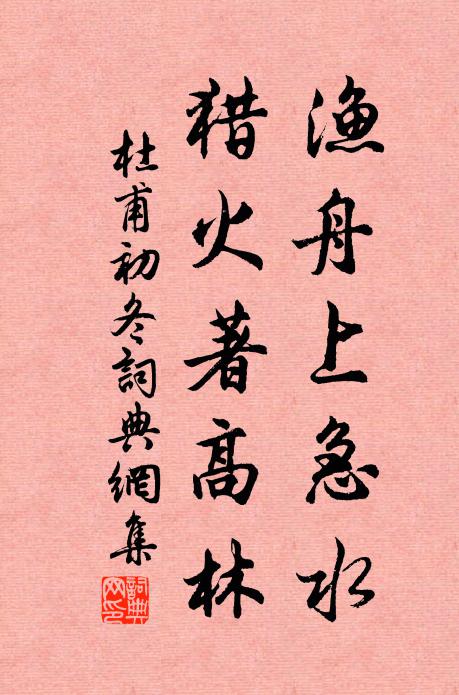 渔舟上急水
猎火著高林
杜甫初冬詞典網集
詞典
网印